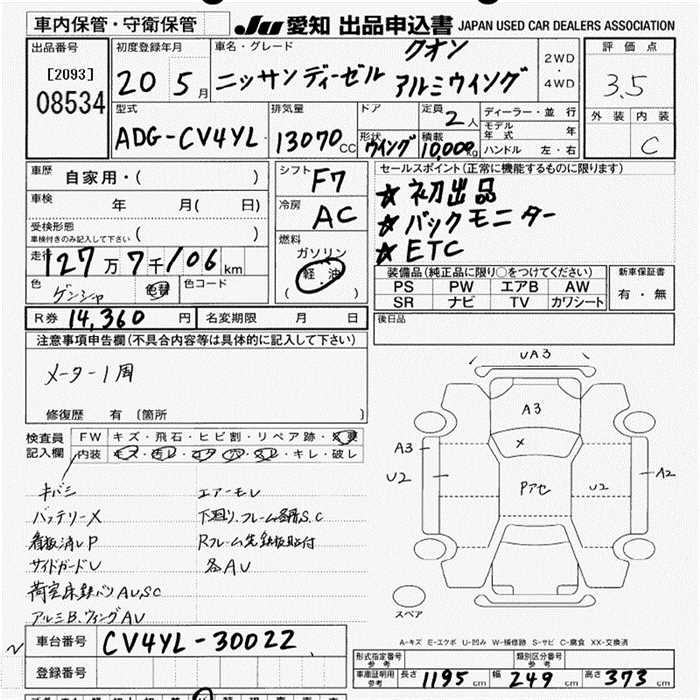 車内保管・守衛保管 JU 愛知 出品申込書 JAPAN USED CAR DEALERS ASSOCIATION
出品番号
[2093]
08534
初度登録年月
20 5月
車名・グレード
ニッサンディーゼル クオン アルミウイング
2WD
・
4WD
評価点
3.5
外装 内装
C
型式
ADG-CV4YL
排気量
13070CC
ドア
形状
ウイング
定員
2人
積載
10,000kg
ディーラー・並行
モデル年式 年
ハンドル 左・右
車歴 自家用・( )
車検 年 月( 日)
受検形態
車検付きのみ記入して下さい ( )
走行 127万7千106km
色 ゲンシャ 色替 色コード
シフト
F7
冷房
AC
燃料
ガソリン
軽・油
( )
セールスポイント(正常に機能するものに限ります)
☆初出品
☆バックモニター
☆ETC
装備品(純正品に限り○をつけてください)
PS PW エアB AW
SR ナビ TV カワシート
新車保証書
有・無
R券 14,360円 名変期限 月 日
後日品
注意事項申告欄(不具合内容等は具体的に記入して下さい)
メーター1周
修復歴 有 (箇所 )
検査員
記入欄
FW キズ・飛石・ヒビ割・リペア跡・交換
内装 キズ・汚レ・コゲ・穴・スレ・キレ・破レ
キバミ
バッテリーX
看板済レP
サイドガードU
荷室床鉄バリAUSC
アルミB、ウィングAU
エアーモレ
下廻り、フレーム各所S.C
Rフレーム先鉄板貼付
各AU
UA3
A3
A3
U2
Pアセ
U2
A2
スペア
A-キズ E-エクボ U-凹み W-補修跡 S-サビ C-腐食 XX-交換済
車台番号 CV4YL-30022
登録番号
形式指定番号
参考
類別区分番号
参考
車庫証明用
参考
長さ 1195cm 幅 249cm 高さ 373cm